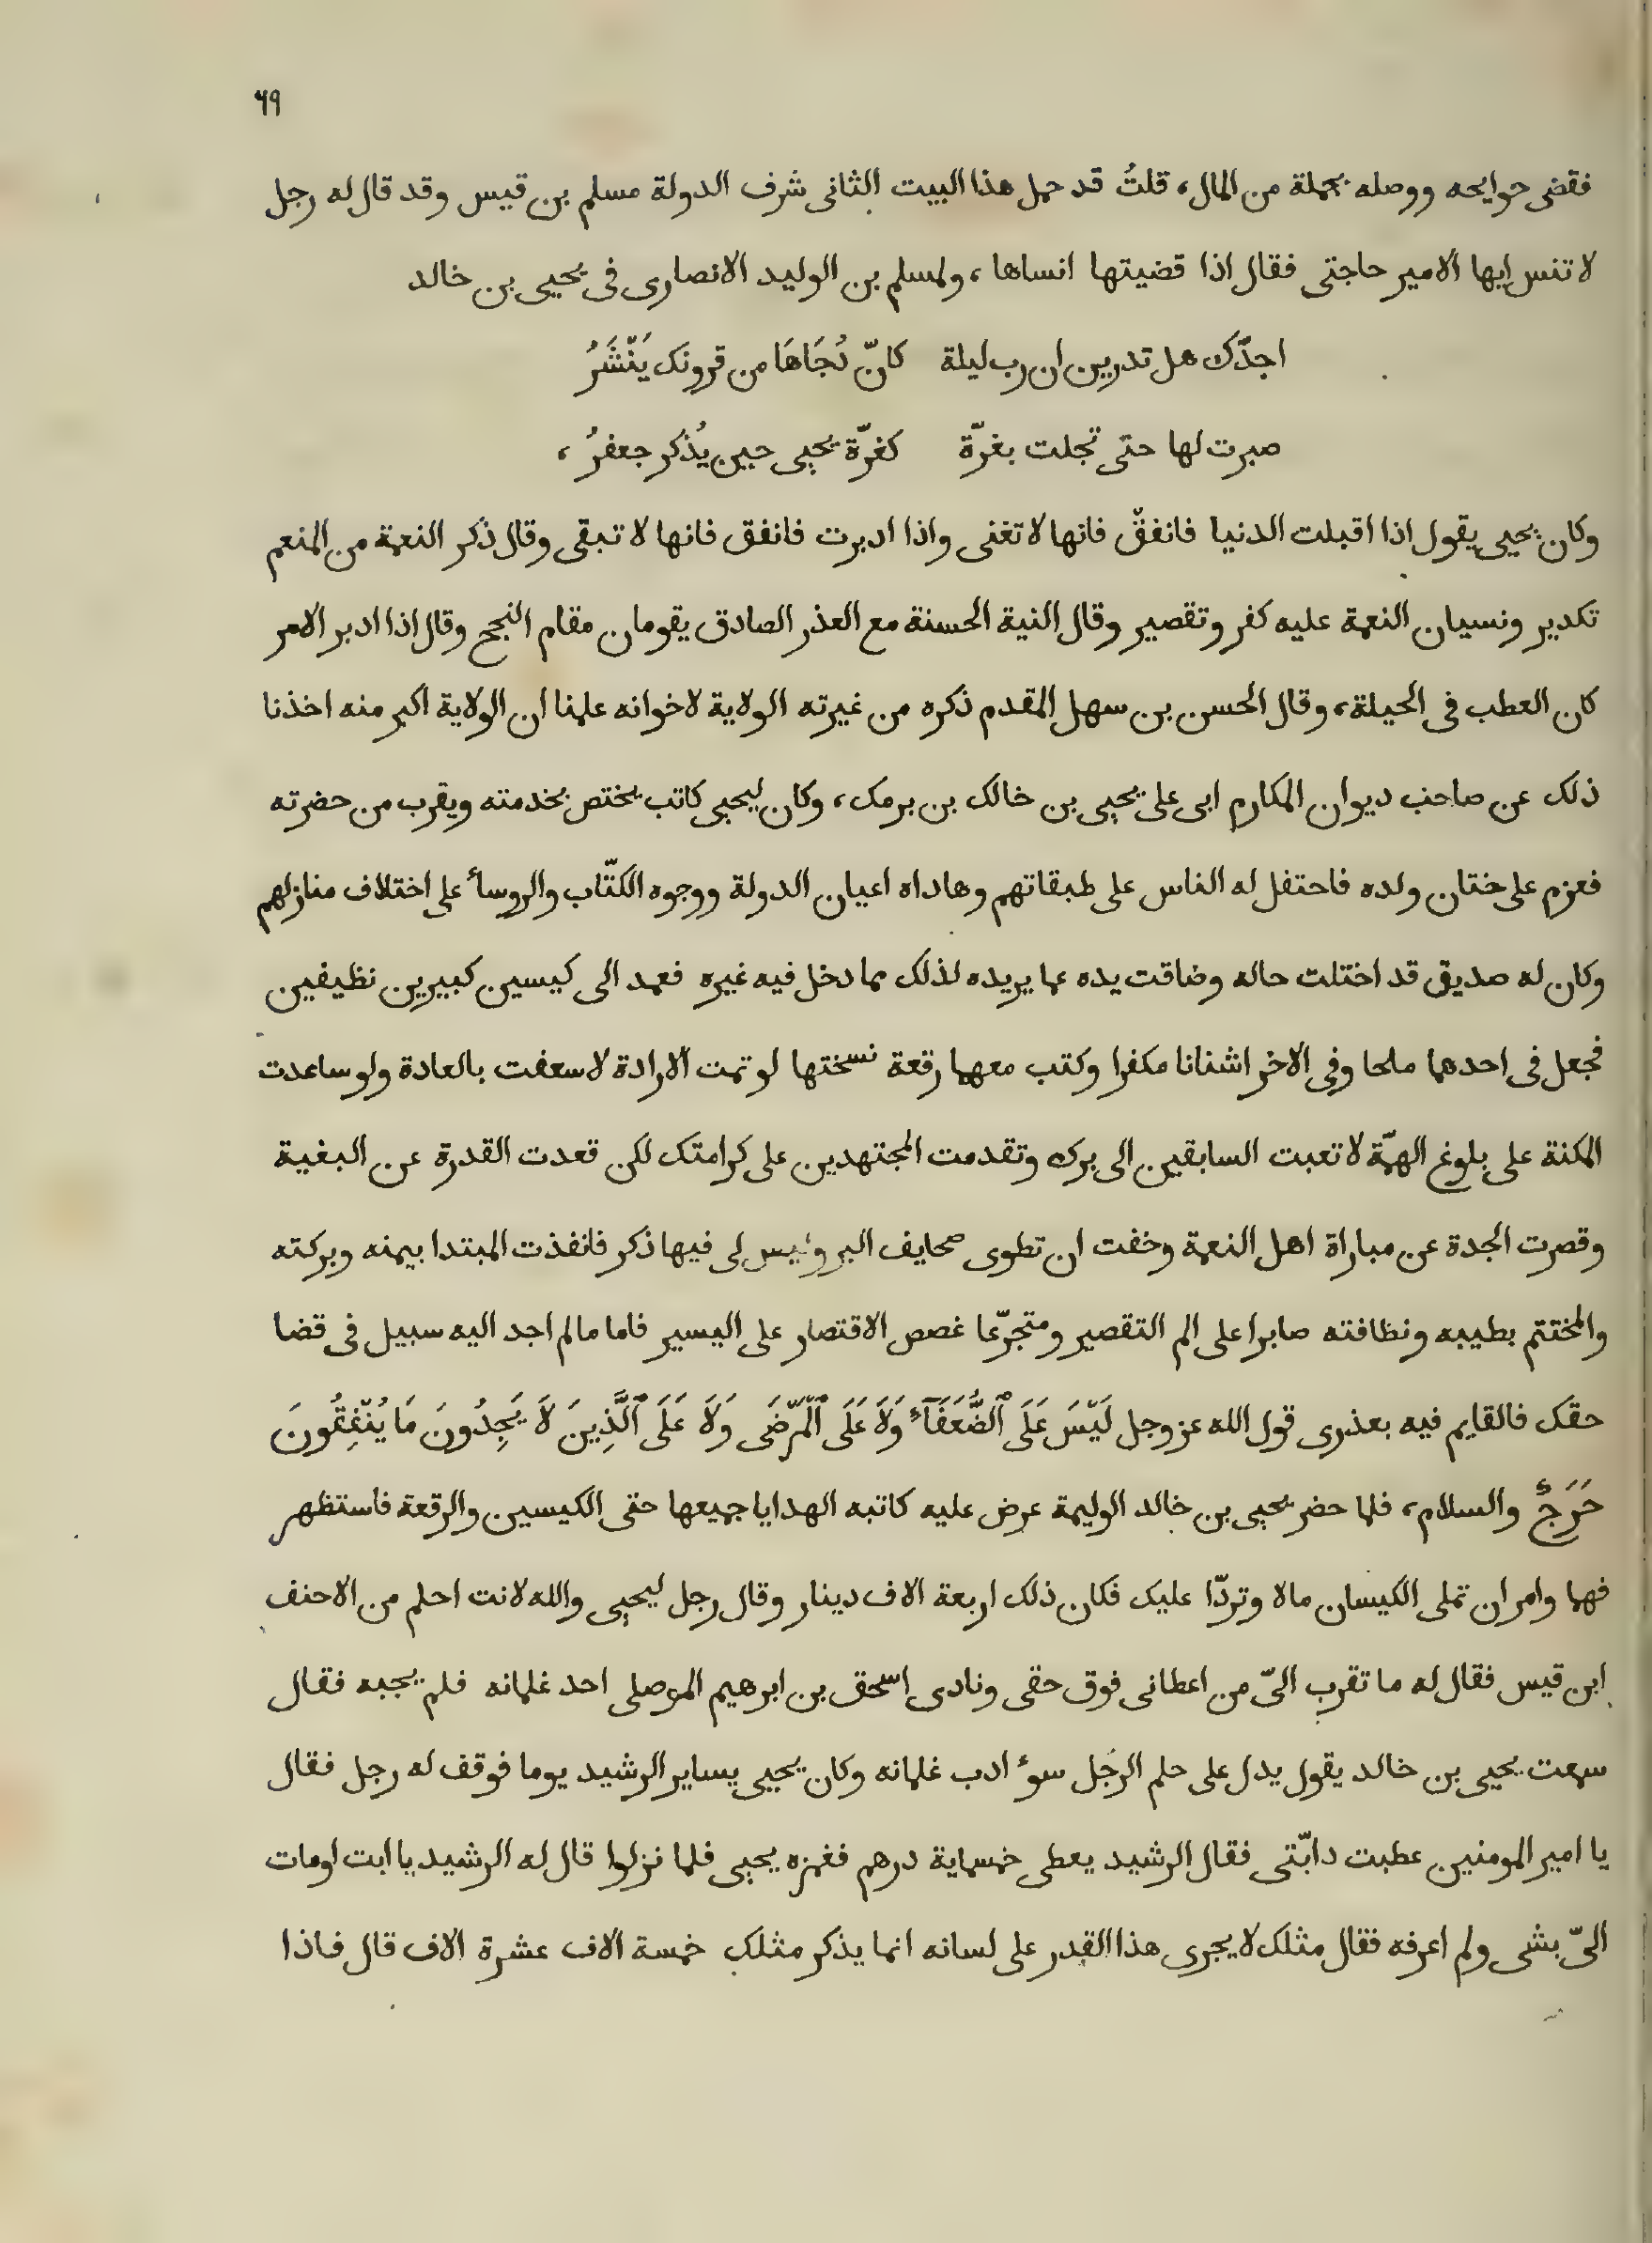 ٦٩
فقضى حوايجه ووصله بجملة من المال، قلتُ قد حمل هذا البيت الثانى شرف الدولة مسلم بن قيس وقد قال له رجل
لا تنس ايها الامير حاجتى فقال اذا قضيتها انساها، ولمسلم بن الوليد الانصارى فى يحيى بن خالد
اجدّك هل تدرين ان رب ليلة كانّ دُجَاهَا من قرونك يَنْشَرُ
صبرت لها حتى تجلت بغرّة كغرّة يحيى حين يُذكر جعفرُ،
وكان يحيى يقول اذا اقبلت الدنيا فانفقْ فانها لا تغنى واذا ادبرت فانفق فانها لا تبقى وقال ذكر النعمة من المنعم
تكدير ونسيان النعمة عليه كفر وتقصير وقال النية الحسنة مع العذر الصادق يقومان مقام النجح وقال اذا ادبر الامر
كان العطب فى الحيلة، وقال الحسن بن سهل المقدم ذكره من غيرته الولاية لاخوانه علمنا ان الولاية اكبر منه اخذنا
ذلك عن صاحب ديوان المكارم ابى على يحيى بن خالك بن برمك، وكان ليحيى كاتب يختص بخدمته ويقرب من حضرته
فعزم على ختان ولده فاحتفل له الناس على طبقاتهم وهاداه اعيان الدولة ووجوه الكتّاب والروسأ على اختلاف منازلهم
وكان له صديق قد اختلت حاله وضاقت يده عما يريده لذلك مما دخل فيه غيره فعمد الى كيسين كبيرين نظيفين
فجعل فى احدهما ملحا وفى الاخر اشنانا مكفرا وكتب معهما رقعة نسختها لو تمت الارادة لاسعفت بالعادة ولو ساعدت
المكنة على بلوغ الهمّة لاتعبت السابقين الى برك وتقدمت المجتهدين على كرامتك لكن قعدت القدرة عن البغية
وقصرت الجدة عن مباراة اهل النعمة وخفت ان تطوى صحايف البر وليس لى فيها ذكر فانفذت المبتدا بيمنه وبركته
والمختتم بطيبه ونظافته صابرا على الم التقصير ومتجرّعا غصص الاقتصار على اليسير فاما مالم اجد اليه سبيل فى قضا
حقك فالقايم فيه بعذرى قول الله عز وجل لَيْسَ عَلَى ٱلضُّعَفَآءِ وَلَا عَلَى ٱلْمَرْضَى وَلَا عَلَى ٱلَّذِينَ لَا يَجِدُونَ مَا يُنْفِقُونَ
حَرَجٌ والسلام، فلما حضر يحيى بن خالد الوليمة عرض عليه كاتبه الهدايا جميعها حتى الكيسين والرقعة فاستظهر
فهما وامر ان تملى الكيسان مالا وتردّا عليك فكان ذلك اربعة الاف دينار وقال رجل ليحيى والله لانت احلم من الاحنف
ابن قيس فقال له ما تقرب الىّ من اعطانى فوق حقى ونادى اسحق بن ابرهيم الموصلى احد غلمانه فلم يجبه فقال
سمعت يحيى بن خالد يقول يدل على حلم الرجل سوء ادب غلمانه وكان يحيى يساير الرشيد يوما فوقف له رجل فقال
يا امير المومنين عطبت دابّتى فقال الرشيد يعطى خمسماية درهم فغمزه يحيى فلما نزلوا قال له الرشيد يا ابت اومات
الىّ بشى ولم اعرفه فقال مثلك لا يجرى هذا القدر على لسانه انما يذكر مثلك خمسة الاف عشرة الاف قال فاذا